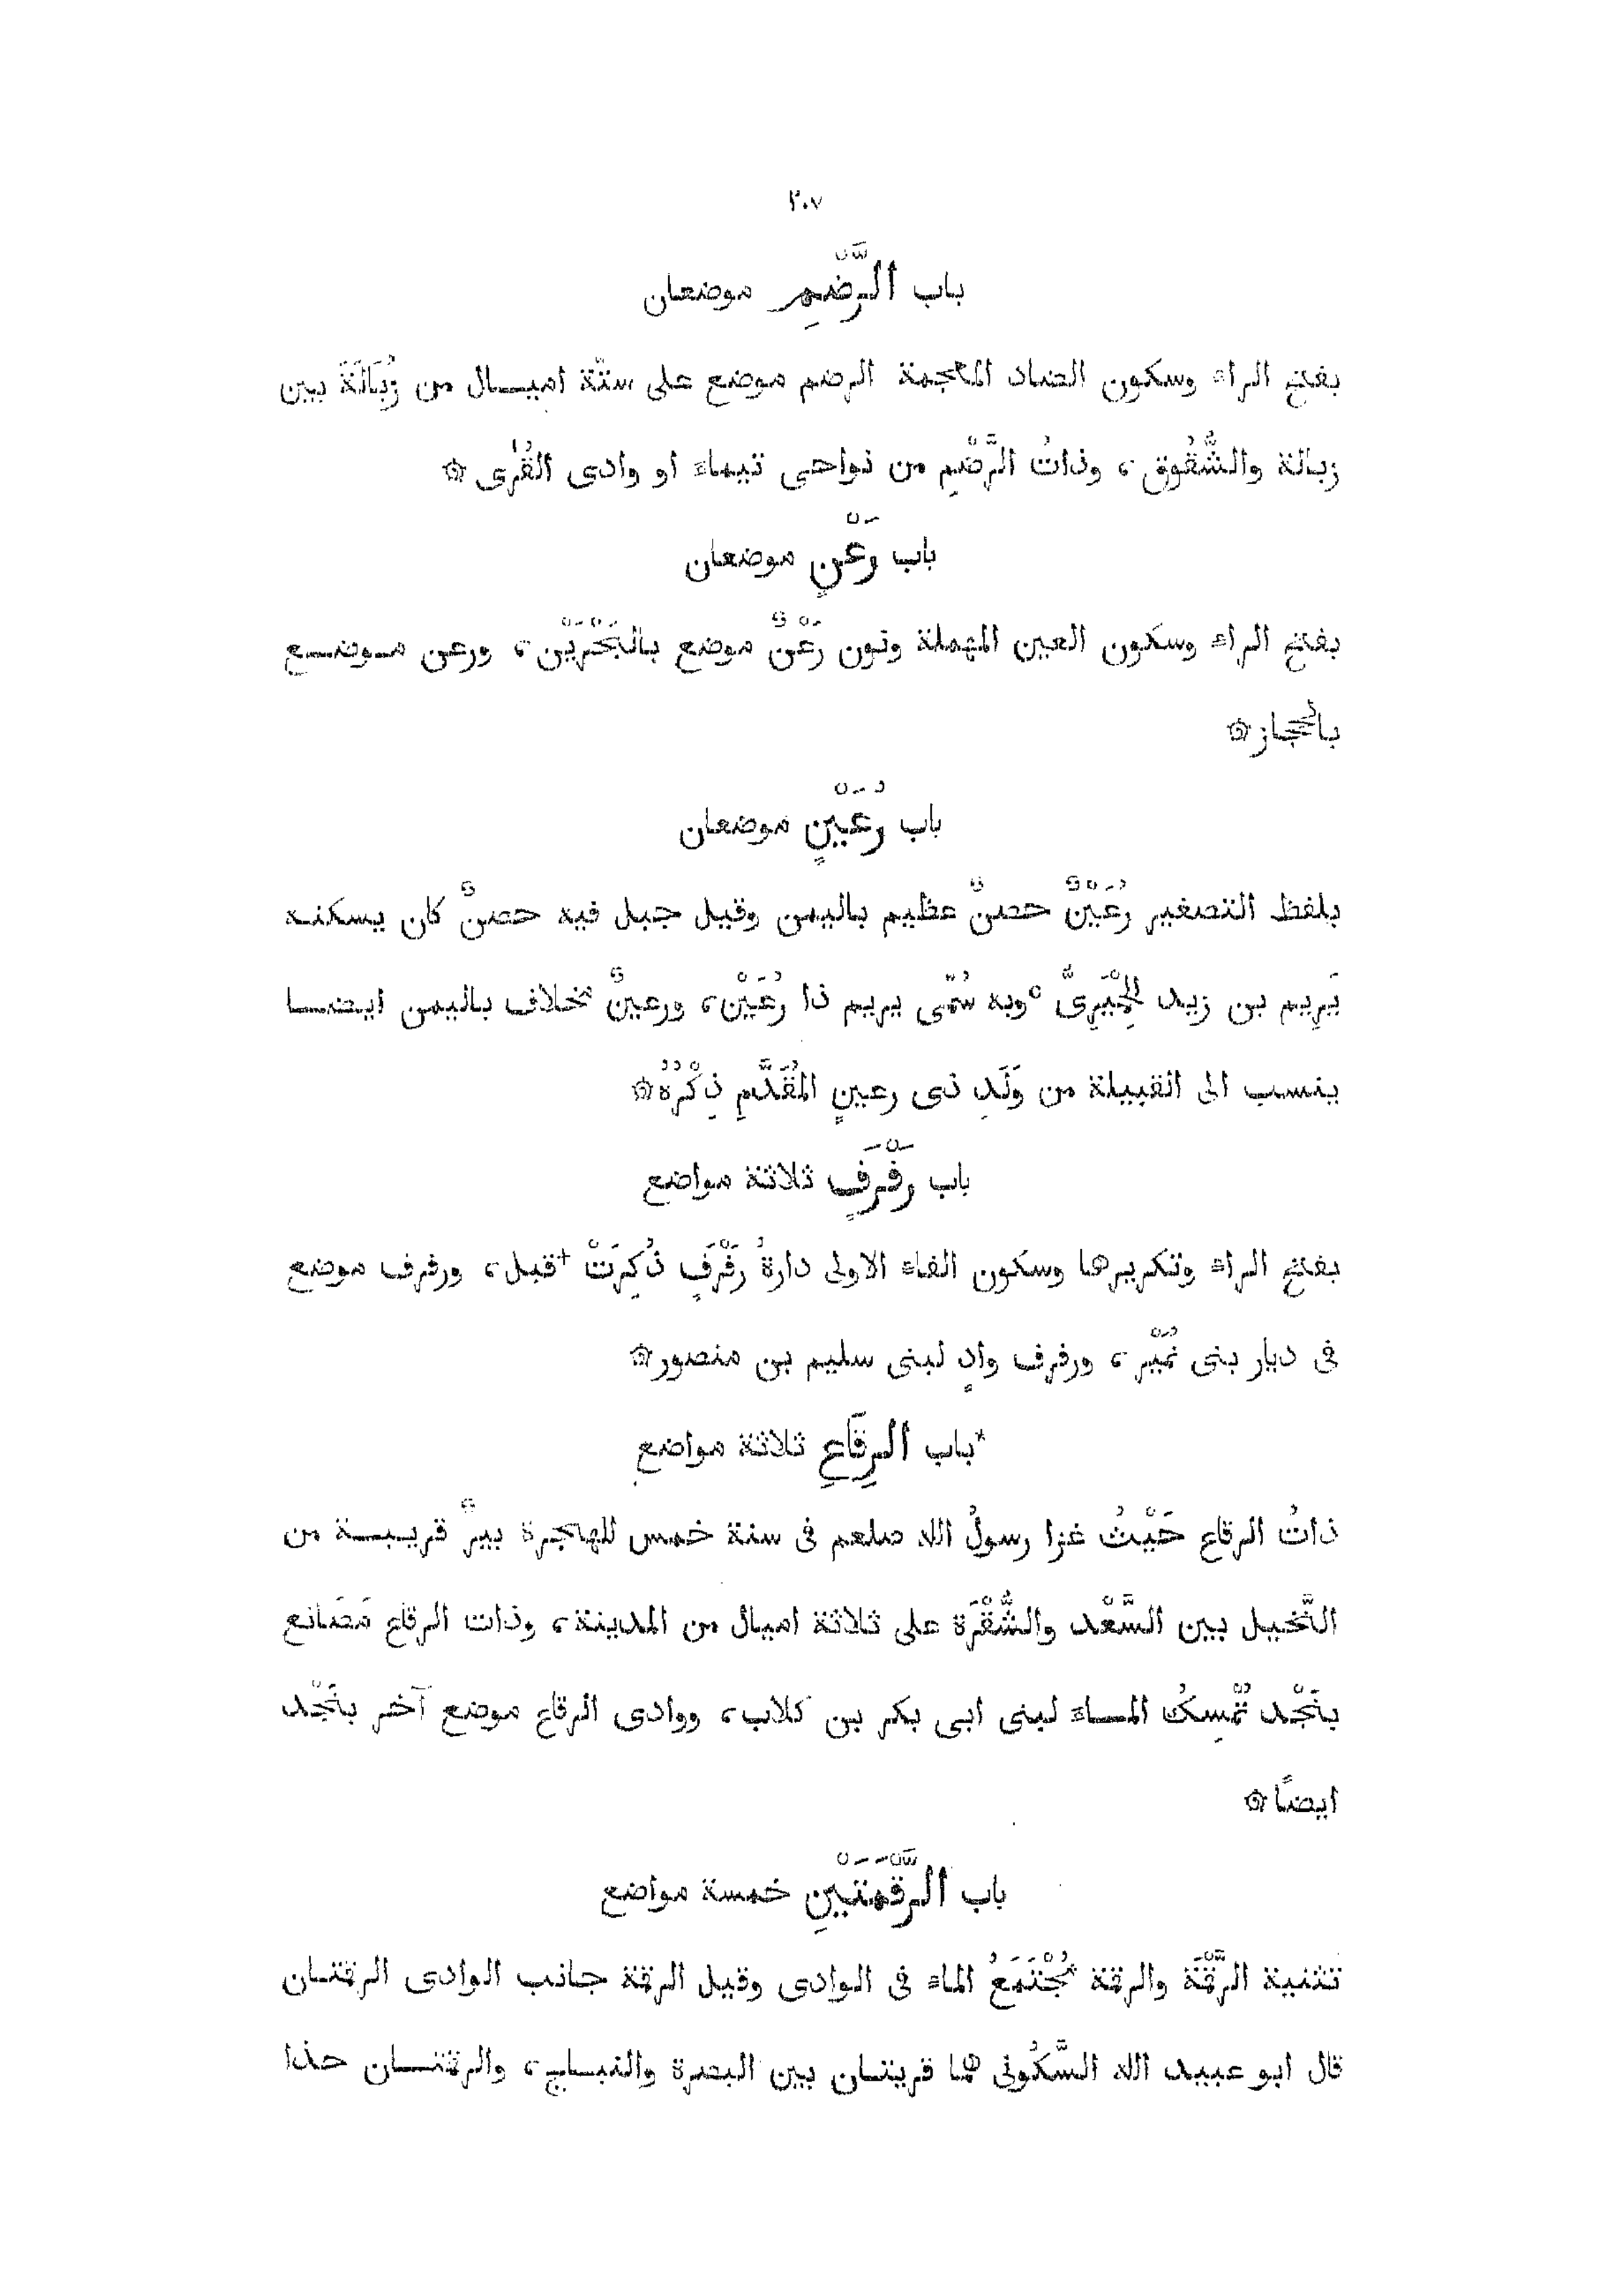 ٢٠٧
باب الرَّضْمِ موضعان
بفتح الراء وسكون الضاد المعجمة الرضم موضع على ستّة اميال من زُبَالَةَ بين
زبالة والشُّقُوق، وذاتُ الرَّضْمِ من نواحى تيماء او وادى القُرَى ۞
باب رَعْنٍ موضعان
بفتح الراء وسكون العين المهملة ونون رَعْنٌ موضع بالبَحْرَيْن، ورعن موضع
بالحجاز ۞
باب رُعَيْنٍ موضعان
بلفظ التصغير رُعَيْنٌ حصنٌ عظيم باليمن وقيل جبل فيه حصنٌ كان يسكنه
يَرِيم بن زيد الحِمْيَرِىُّ ° وبه سُمّى يريم ذا رُعَيْن، ورعينٌ مخلاف باليمن ايضا
ينسب الى القبيلة من وَلَدِ ذى رعينٍ المُقَدَّمِ ذِكْرُهُ ۞
باب رَفْرَفٍ ثلاثة مواضع
بفتح الراء وتكريرها وسكون الفاء الاولى دارةُ رَفْرَفٍ ذُكِرَتْ †قبل، ورفرف موضع
فى ديار بنى نُمَيْر، ورفرف وادٍ لبنى سليم بن منصور ۞
*باب الرِقَاعِ ثلاثة مواضع
ذاتُ الرقاع حَيْثُ غزا رسولُ الله صلعم فى سنة خمس للهجرة بيرٌ قريبة من
النَّخيل بين السَّعْد والشُّقْرَة على ثلاثة اميال من المدينة، وذات الرقاع مَصَانع
بنَجْد تُمْسِكُ الماء لبنى ابى بكر بن كلاب، ووادى الرقاع موضع آخر بنَجْد
ايضًا ۞
باب الرَّقْمَتَيْنِ خمسة مواضع
تثنية الرَّقْمَة والرقمة مُجْتَمَعُ الماء فى الوادى وقيل الرقمة جانب الوادى الرقمتان
قال ابو عبيد الله السَّكُونى هما قريتان بين البصرة والنباج، والرقمتان حذا